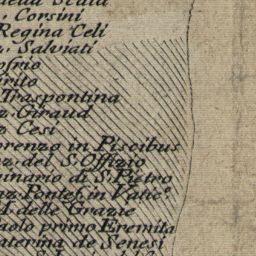 della Scala
. Corsini
Regina Celi
z. Salviati
ofrio
irito
Traspontina
z. Giraud
z Cesi
orenzo in Piscibus
az. del S. Offizio
minario di S. Pietro
az. Pontef. in Vatic.º
M. delle Grazie
aolo primo Eremita
aterina de Senesi